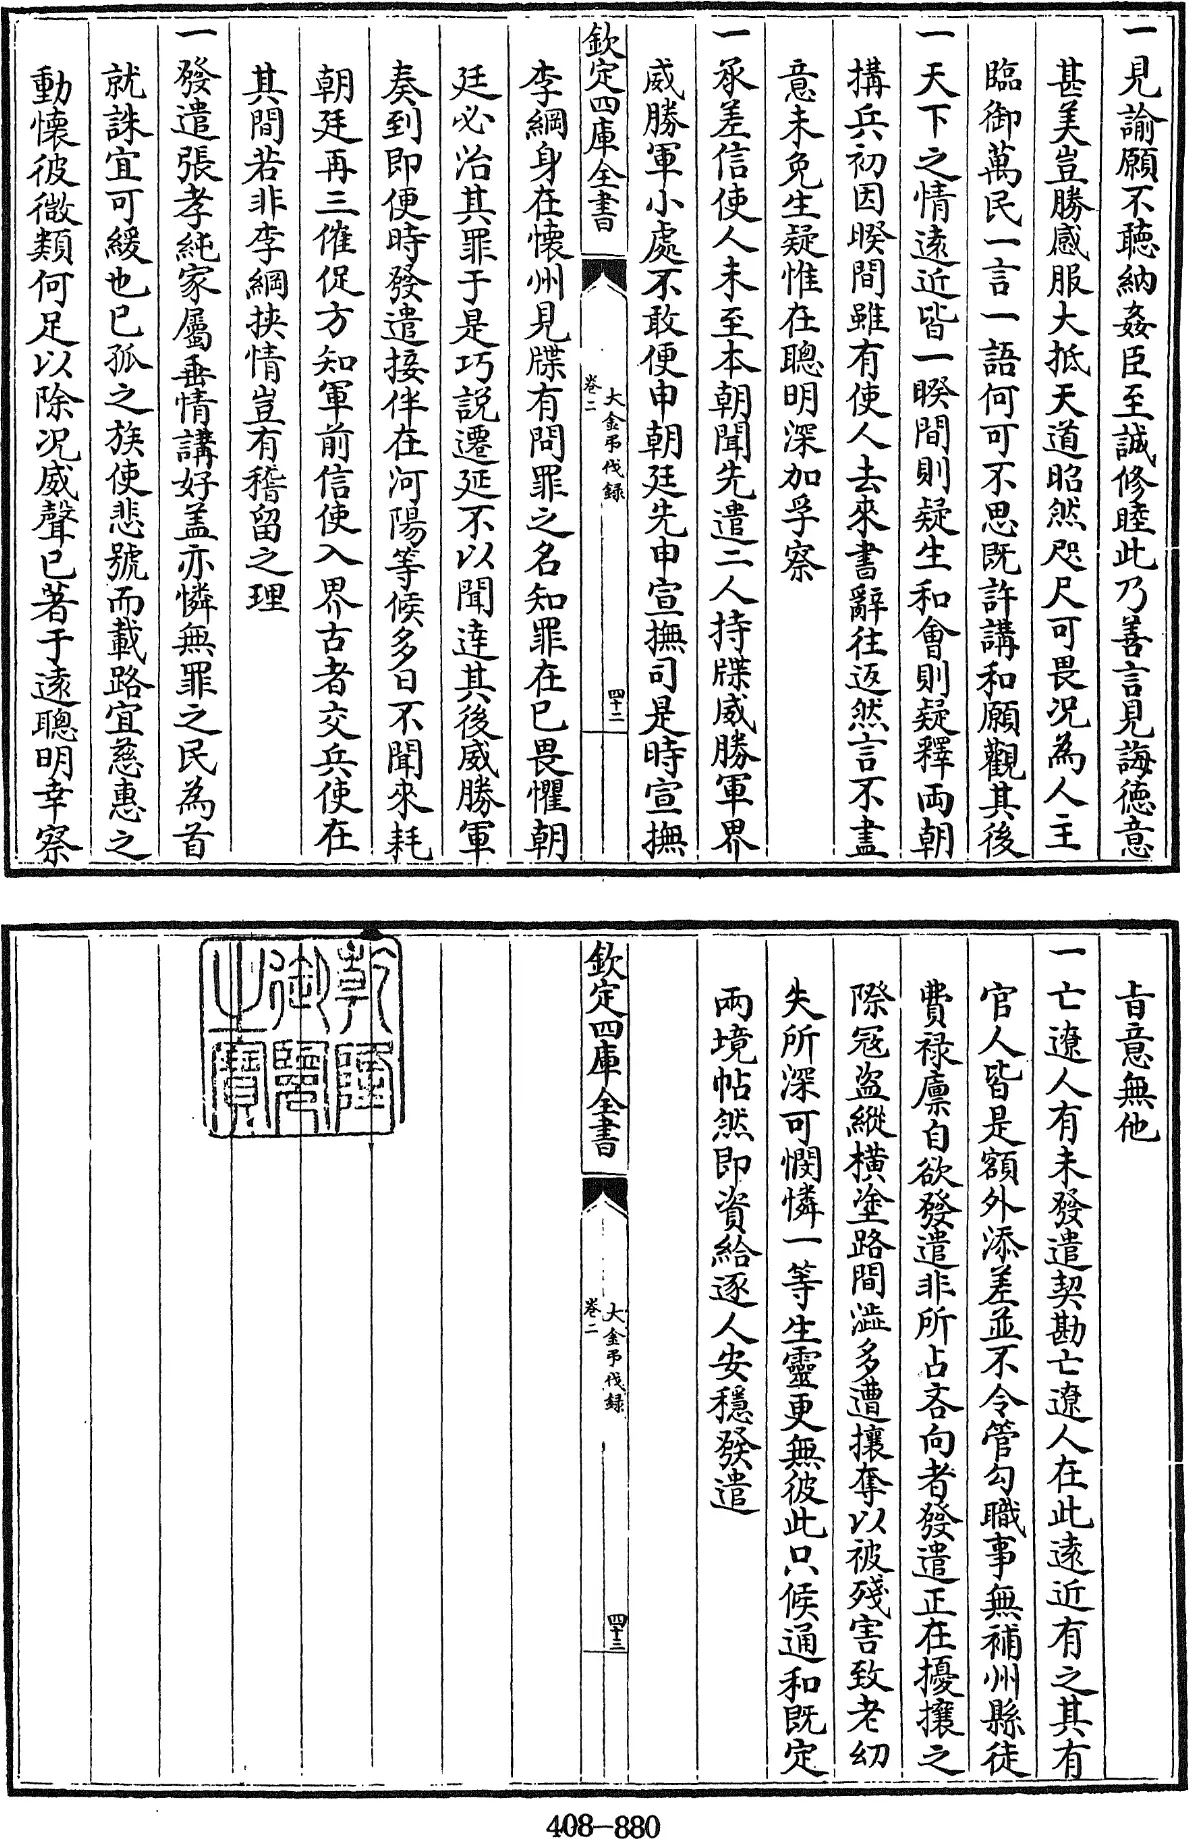 一見諭願不聽納姦臣至誠修睦此乃善言見誨德意
甚美豈勝感服大抵天道昭然咫尺可畏況為人主
臨御萬民一言一語何可不思既許講和願觀其後
一天下之情遠近皆一睽間則疑生和會則疑釋兩朝
搆兵初因睽間雖有使人去來書辭往返然言不盡
意未免生疑惟在聰明深加孚察
一承差信使人未至本朝聞先遣二人持牒威勝軍界
威勝軍小處不敢便申朝廷先申宣撫司是時宣撫
欽定四庫全書
大金弔伐録
卷二
四十二
李綱身在懷州見牒有問罪之名知罪在已畏懼朝
廷必治其罪于是巧説遷延不以聞達其後威勝軍
奏到即便時發遣接伴在河陽等候多日不聞來耗
朝廷再三催促方知軍前信使入界古者交兵使在
其間若非李綱挾情豈有稽留之理
一發遣張孝純家屬垂情講好盖亦憐無罪之民為首
就誅宜可緩也已孤之族使悲號而載路宜慈惠之
動懷彼微類何足以除況威聲已著于遠聰明幸察
旨意無他
一亡遼人有未發遣契勘亡遼人在此遠近有之其有
官人皆是額外添差並不令管勾職事無補州縣徒
費禄廪自欲發遣非所占吝向者發遣正在擾攘之
際冦盗縱橫塗路間澁多遭攘奪以被殘害致老幼
失所深可憫憐一等生靈更無彼此只候通和既定
兩境帖然即資給逐人安穩發遣
欽定四庫全書
大金弔伐録
卷二
四十三
乾隆御覽之寶
408-880